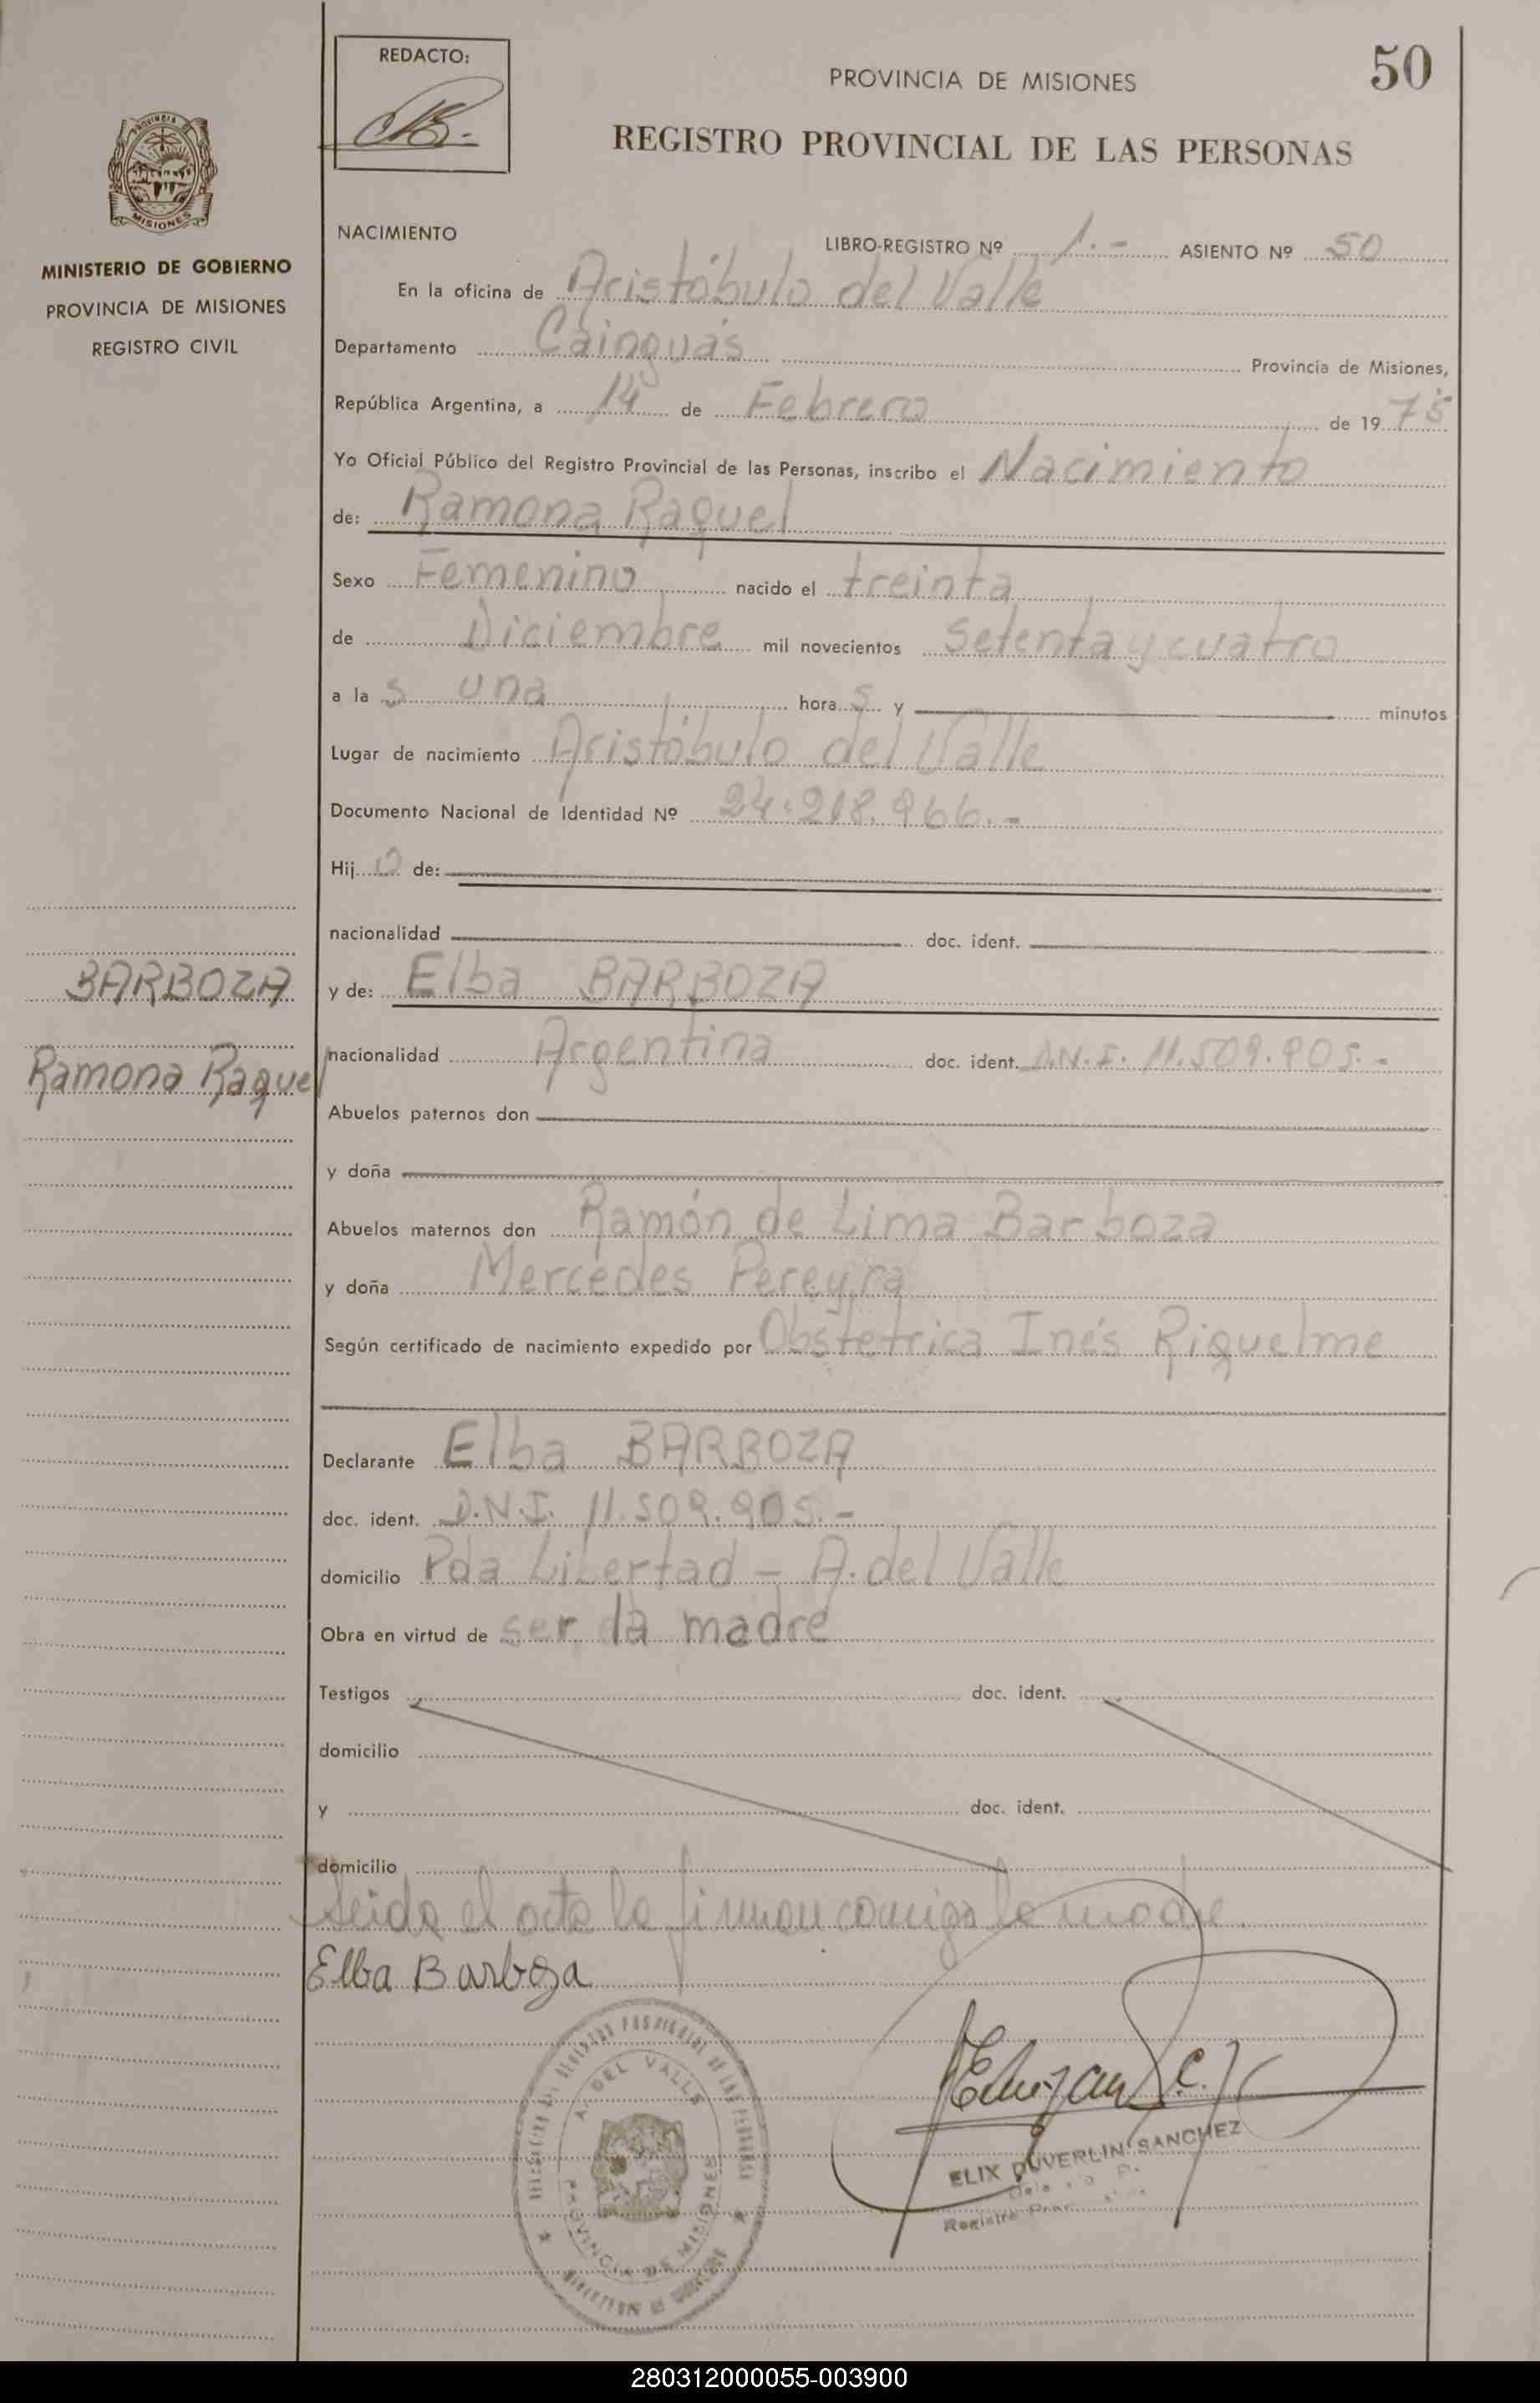 REDACTO:
50
PROVINCIA DE MISIONES
REGISTRO PROVINCIAL DE LAS PERSONAS
PROVINCIA
MISIONES
MINISTERIO DE GOBIERNO
PROVINCIA DE MISIONES
REGISTRO CIVIL
NACIMIENTO
LIBRO-REGISTRO Nº 1.- ASIENTO Nº 50
En la oficina de Aristóbulo del Valle
Departamento Cainguás Provincia de Misiones,
República Argentina, a 14 de Febrero de 1975
Yo Oficial Público del Registro Provincial de las Personas, inscribo el Nacimiento
de: Ramona Raquel
Sexo Femenino nacido el treinta
de Diciembre mil novecientos setenta y cuatro
a la s una hora s y minutos
Lugar de nacimiento Aristóbulo del Valle
Documento Nacional de Identidad Nº 24.218.966.-
Hij a de:
nacionalidad doc. ident.
BARBOZA
y de: Elba BARBOZA
Ramona Raquel
nacionalidad Argentina doc. ident. D.N.I. 11.509.905.-
Abuelos paternos don
y doña
Abuelos maternos don Ramón de Lima Barboza
y doña Mercedes Pereyra
Según certificado de nacimiento expedido por Obstetrica Inés Riquelme
Declarante Elba BARBOZA
doc. ident. D.N.I. 11.509.905.-
domicilio Pda Libertad - A. del Valle
Obra en virtud de ser la madre
Testigos doc. ident.
domicilio
y doc. ident.
domicilio
Leida el acta la firman conmigo la madre.
Elba Barboza
A. DEL VALLE
PROVINCIA DE MISIONES
ELIX DUVERLIN SANCHEZ
280312000055-003900